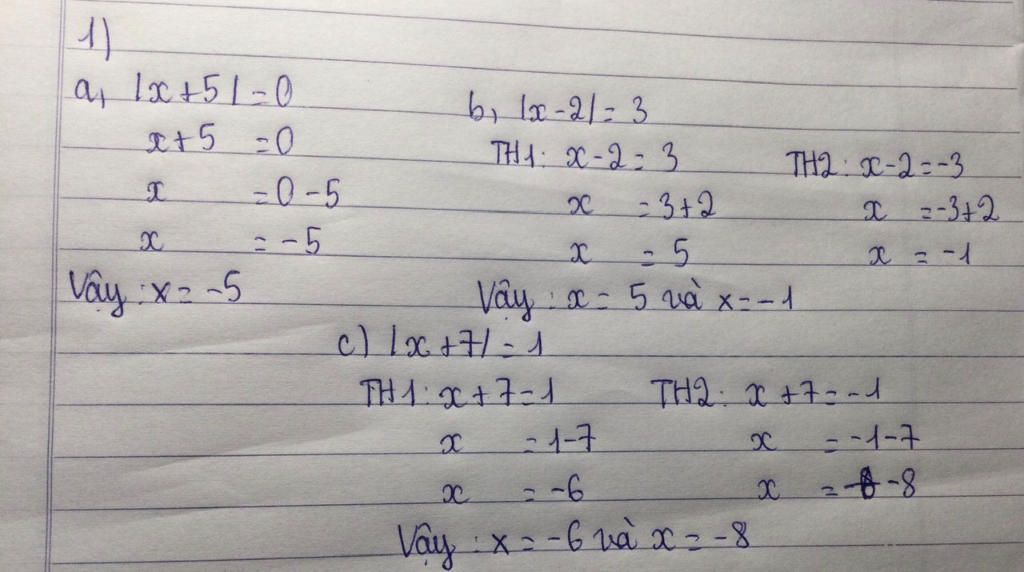 1)
a, |x+5|=0
x+5 =0
x =0-5
x =-5
Vậy : x=-5
b, |x-2|=3
TH1: x-2=3
x =3+2
x =5
TH2: x-2=-3
x =-3+2
x =-1
Vậy : x=5 và x=-1
c) |x+7|=1
TH1: x+7=1
x =1-7
x =-6
TH2: x+7=-1
x =-1-7
x =-8
Vậy : x=-6 và x=-8